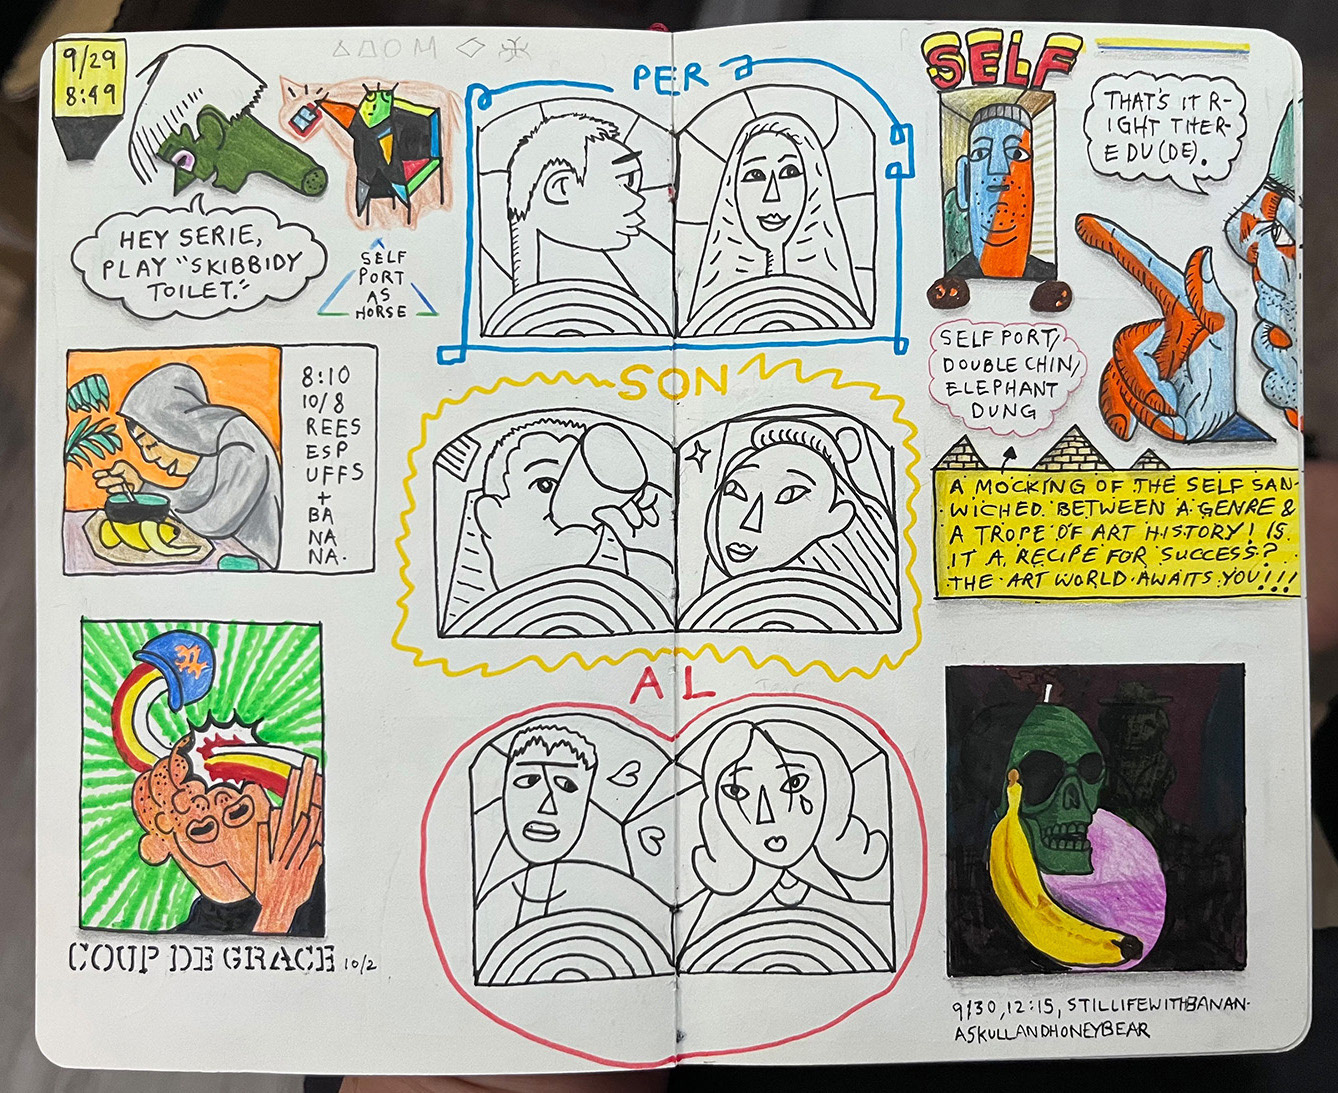 9/29
8:49
HEY SERIE,
PLAY "SKIBBIDY
TOILET."
SELF
PORT
AS
HORSE
8:10
10/8
REES
ESP
UFFS
+
BA
NA
NA.
COUP DE GRACE 10/2
PER
SON
AL
SELF
THAT'S IT R-
IGHT THER-
E DU(DE).
SELF PORT/
DOUBLE CHIN/
ELEPHANT
DUNG
A MOCKING OF THE SELF SAN-
WICHED BETWEEN A GENRE &
A TROPE OF ART HISTORY! IS
IT A RECIPE FOR SUCCESS?
THE ART WORLD AWAITS YOU!!!
9/30, 12:15, STILLIFEWITHBANAN-
ASKULLANDHONEYBEAR